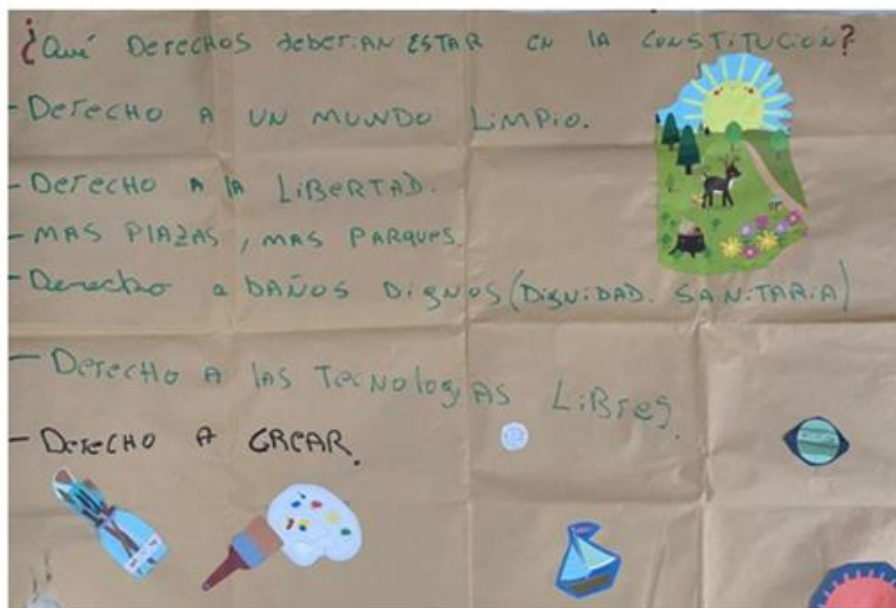 ¿Qué DERECHOS deberiAN ESTAR EN LA CONSTITUCIÓN?
- DERECHO A UN MUNDO LIMPIO.
- DERECHO A LA LIBERTAD.
- MAS PLAZAS, MAS PARQUES.
- Derecho a DAÑOS DIGNOS (DIGNIDAD. SANITARIA)
- DERECHO A LAS TECNOLOGIAS LIBRES.
- DERECHO A CREAR.